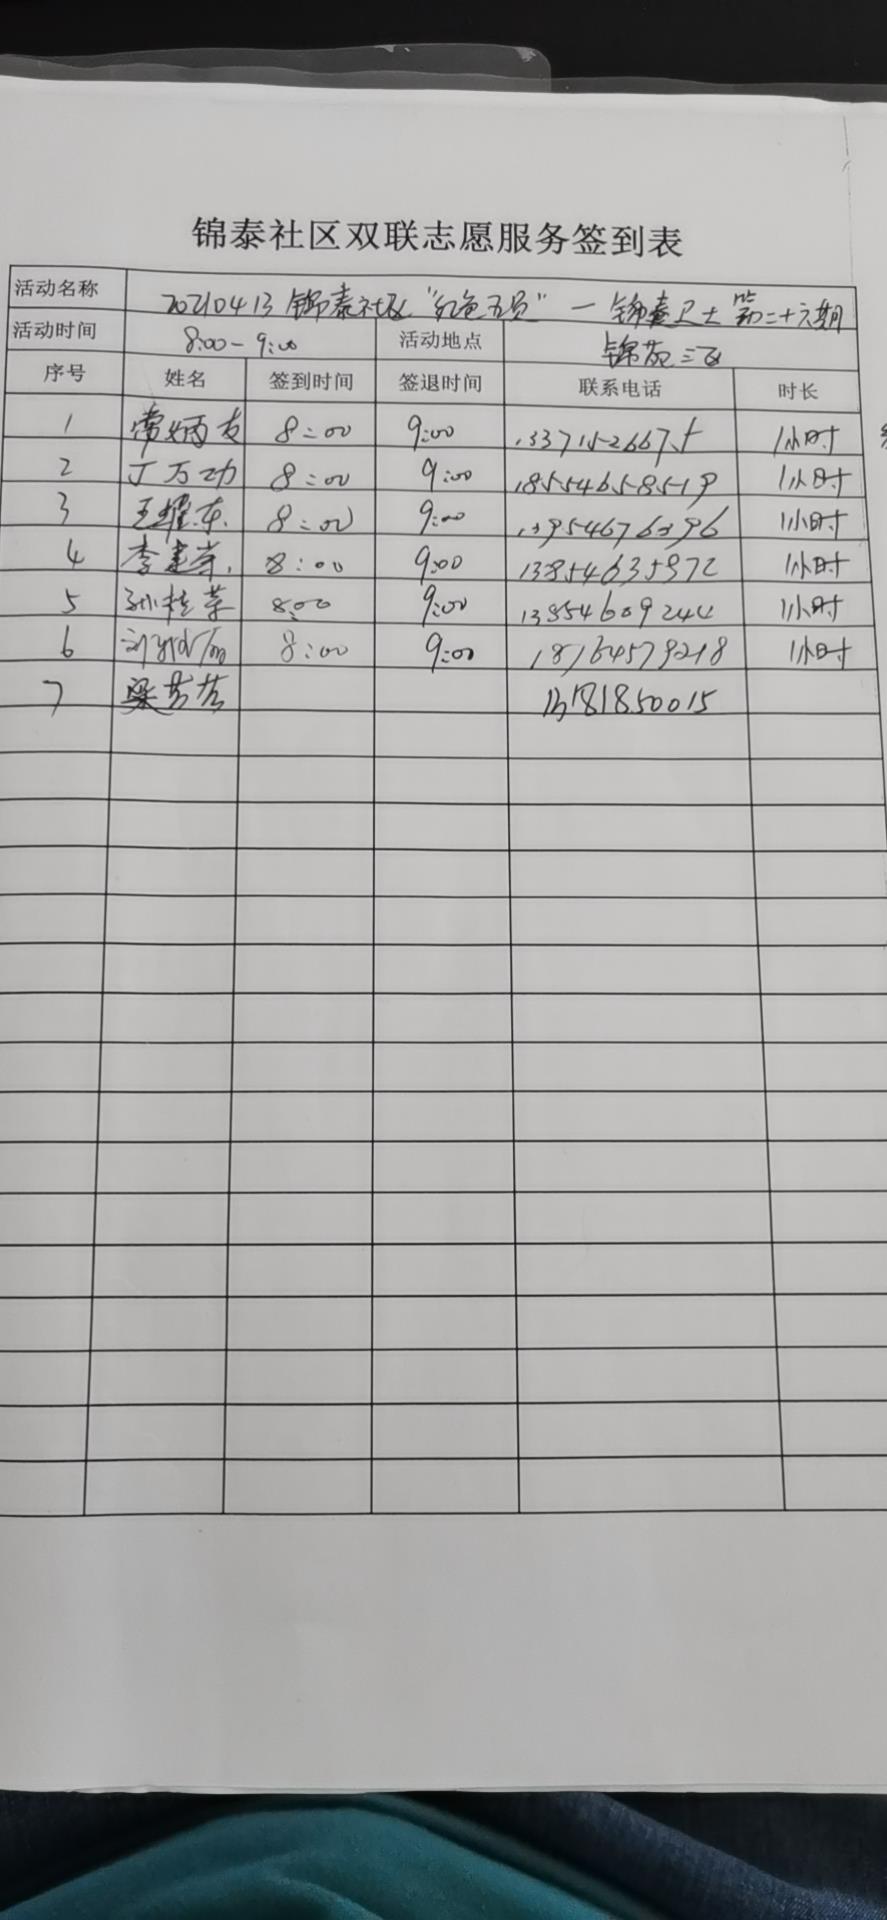 锦泰社区双联志愿服务签到表
活动名称 20210413 锦泰社区"红色五员"一锦泰卫士第二十六期
活动时间 8:00-9:00 活动地点 锦苑三区
序号 姓名 签到时间 签退时间 联系电话 时长
1 常炳友 8:00 9:00 1小时
2 丁万功 8:00 9:00 18554658519 1小时
3 王耀东 8:00 9:00 13954676396 1小时
4 李建堂 8:00 9:00 1小时
5 孙桂荣 8:00 9:00 1小时
6 8:00 9:00 18764579218 1小时
7 梁芳芳 13181850015